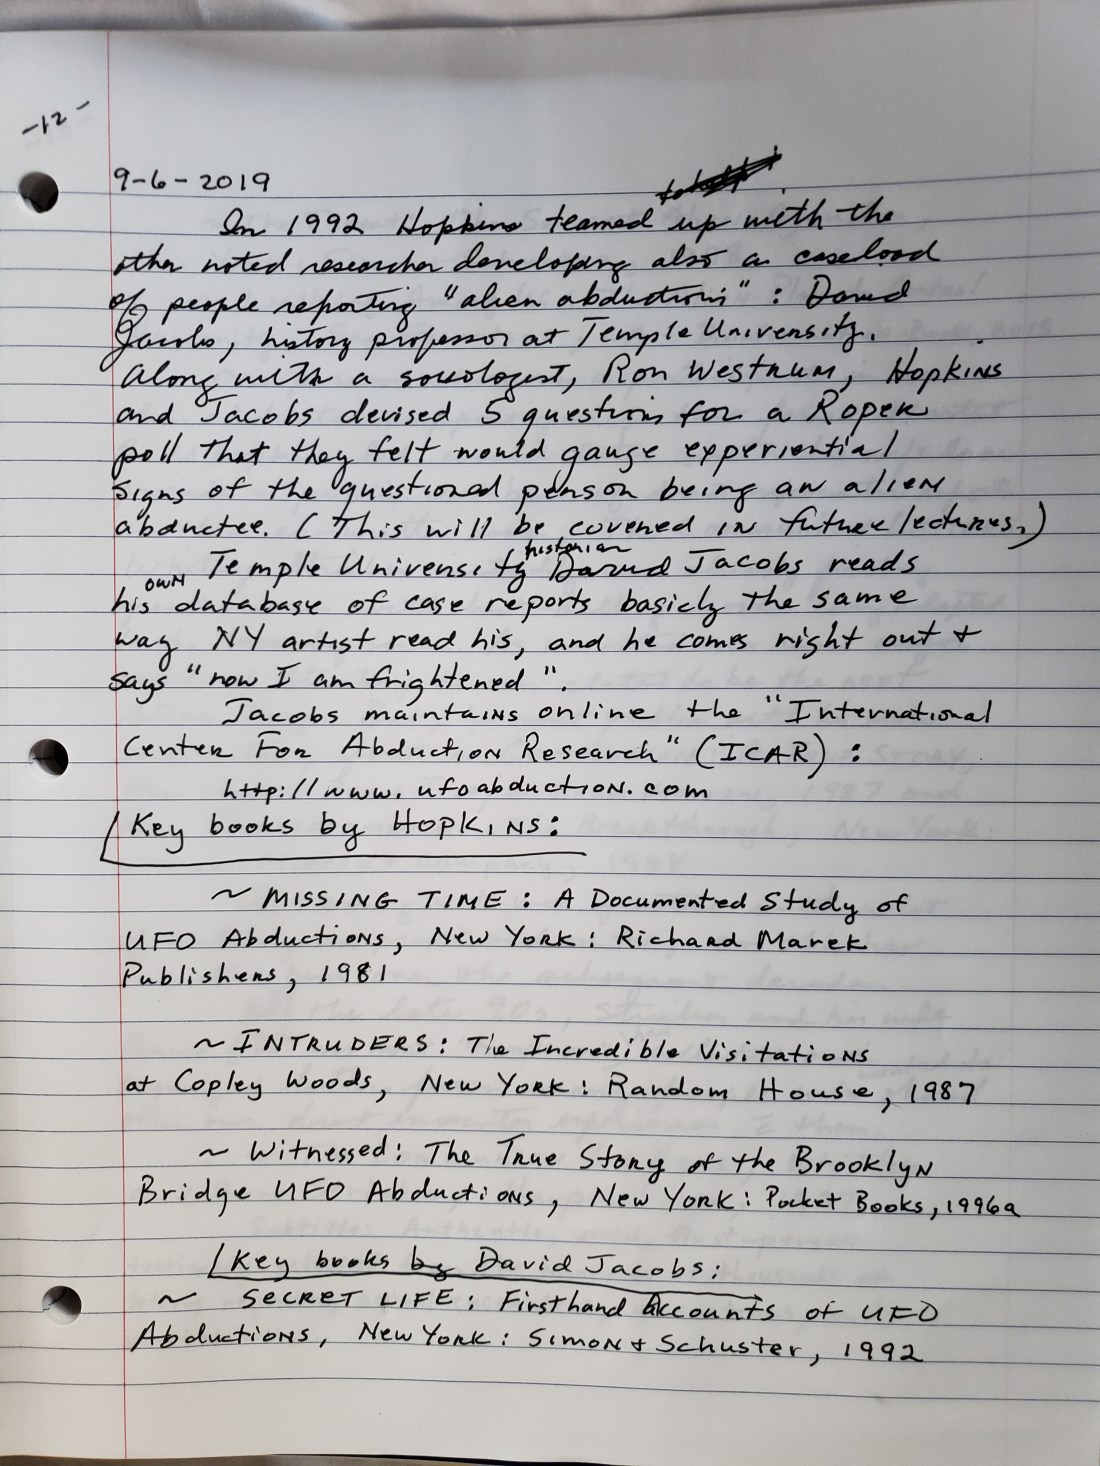 -12-
9-6-2019
In 1992 Hopkins teamed up with the
other noted researcher developing also a caseload
of people reporting "alien abductions" : David
Jacobs, history professor at Temple University.
Along with a sociologist, Ron Westrum, Hopkins
and Jacobs devised 5 questions for a Roper
poll that they felt would gauge experiential
signs of the questioned person being an alien
abductee. (This will be covered in future lectures.)
historian
Temple University David Jacobs reads
own
his database of case reports basicly the same
way NY artist read his, and he comes right out +
says "now I am frightened".
Jacobs maintains online the "International
Center For Abduction Research" (ICAR) :
http://www.ufoabduction.com
Key books by Hopkins:
~ MISSING TIME : A Documented Study of
UFO Abductions, New York : Richard Marek
Publishers, 1981
~ INTRUDERS : The Incredible Visitations
at Copley Woods, New York : Random House, 1987
~ Witnessed : The True Story of the Brooklyn
Bridge UFO Abductions, New York : Pocket Books, 1996a
Key books by David Jacobs:
~ SECRET LIFE : Firsthand Accounts of UFO
Abductions, New York : Simon & Schuster, 1992